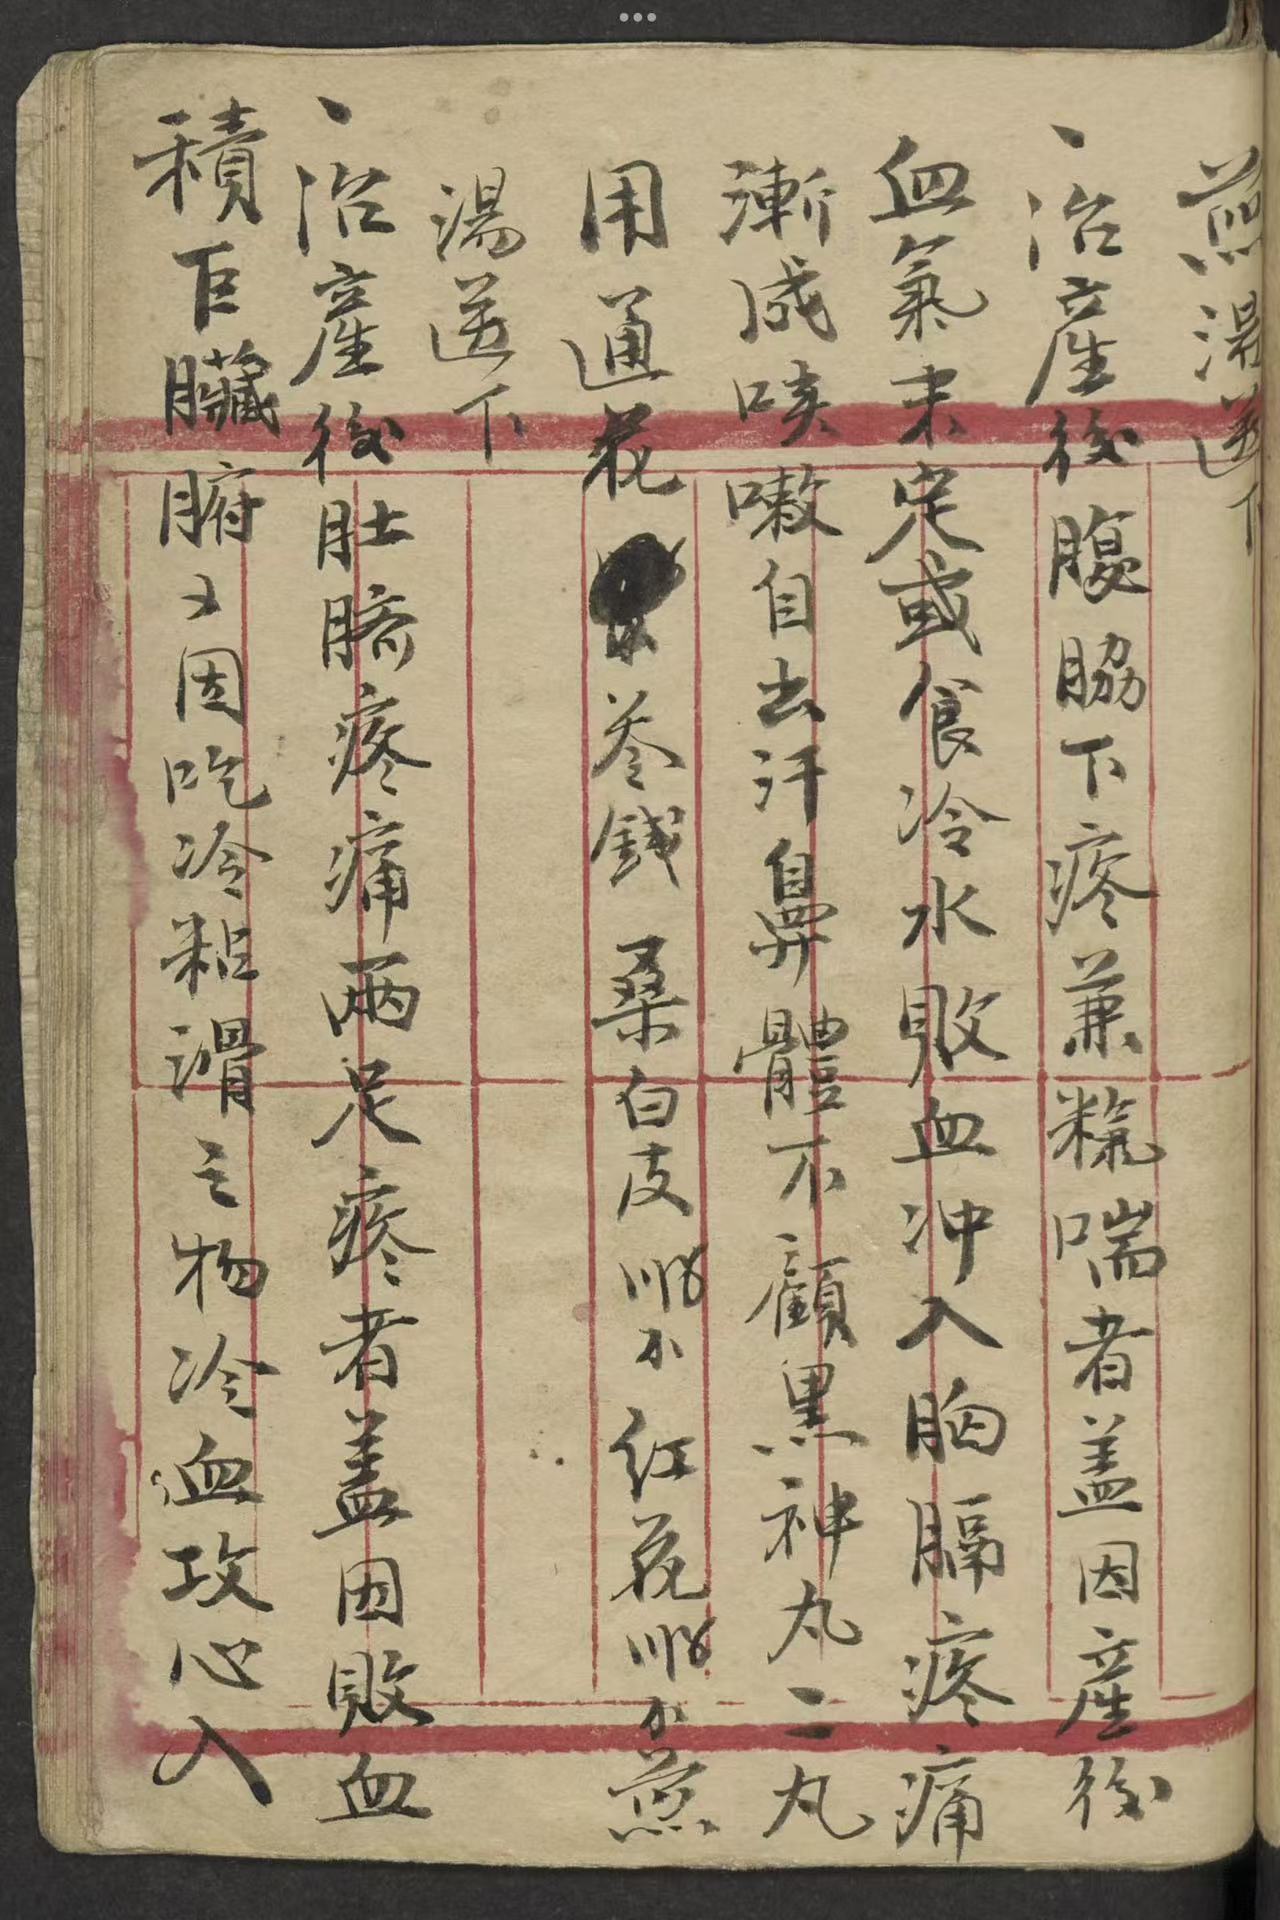 煎湯送下
、治產後腹脇下疼兼糓喘者盖因產後
血氣未定或食冷水敗血冲入胸膈疼痛
漸成咳嗽自去汗鼻體不顧黑神丸二丸
用通花苓錢桑白皮卜红花卜煎
湯送下
、治產後肚臍疼痛兩足疼者盖因敗血
積臣臟腑又因吃冷粗滑之物冷血攻心入